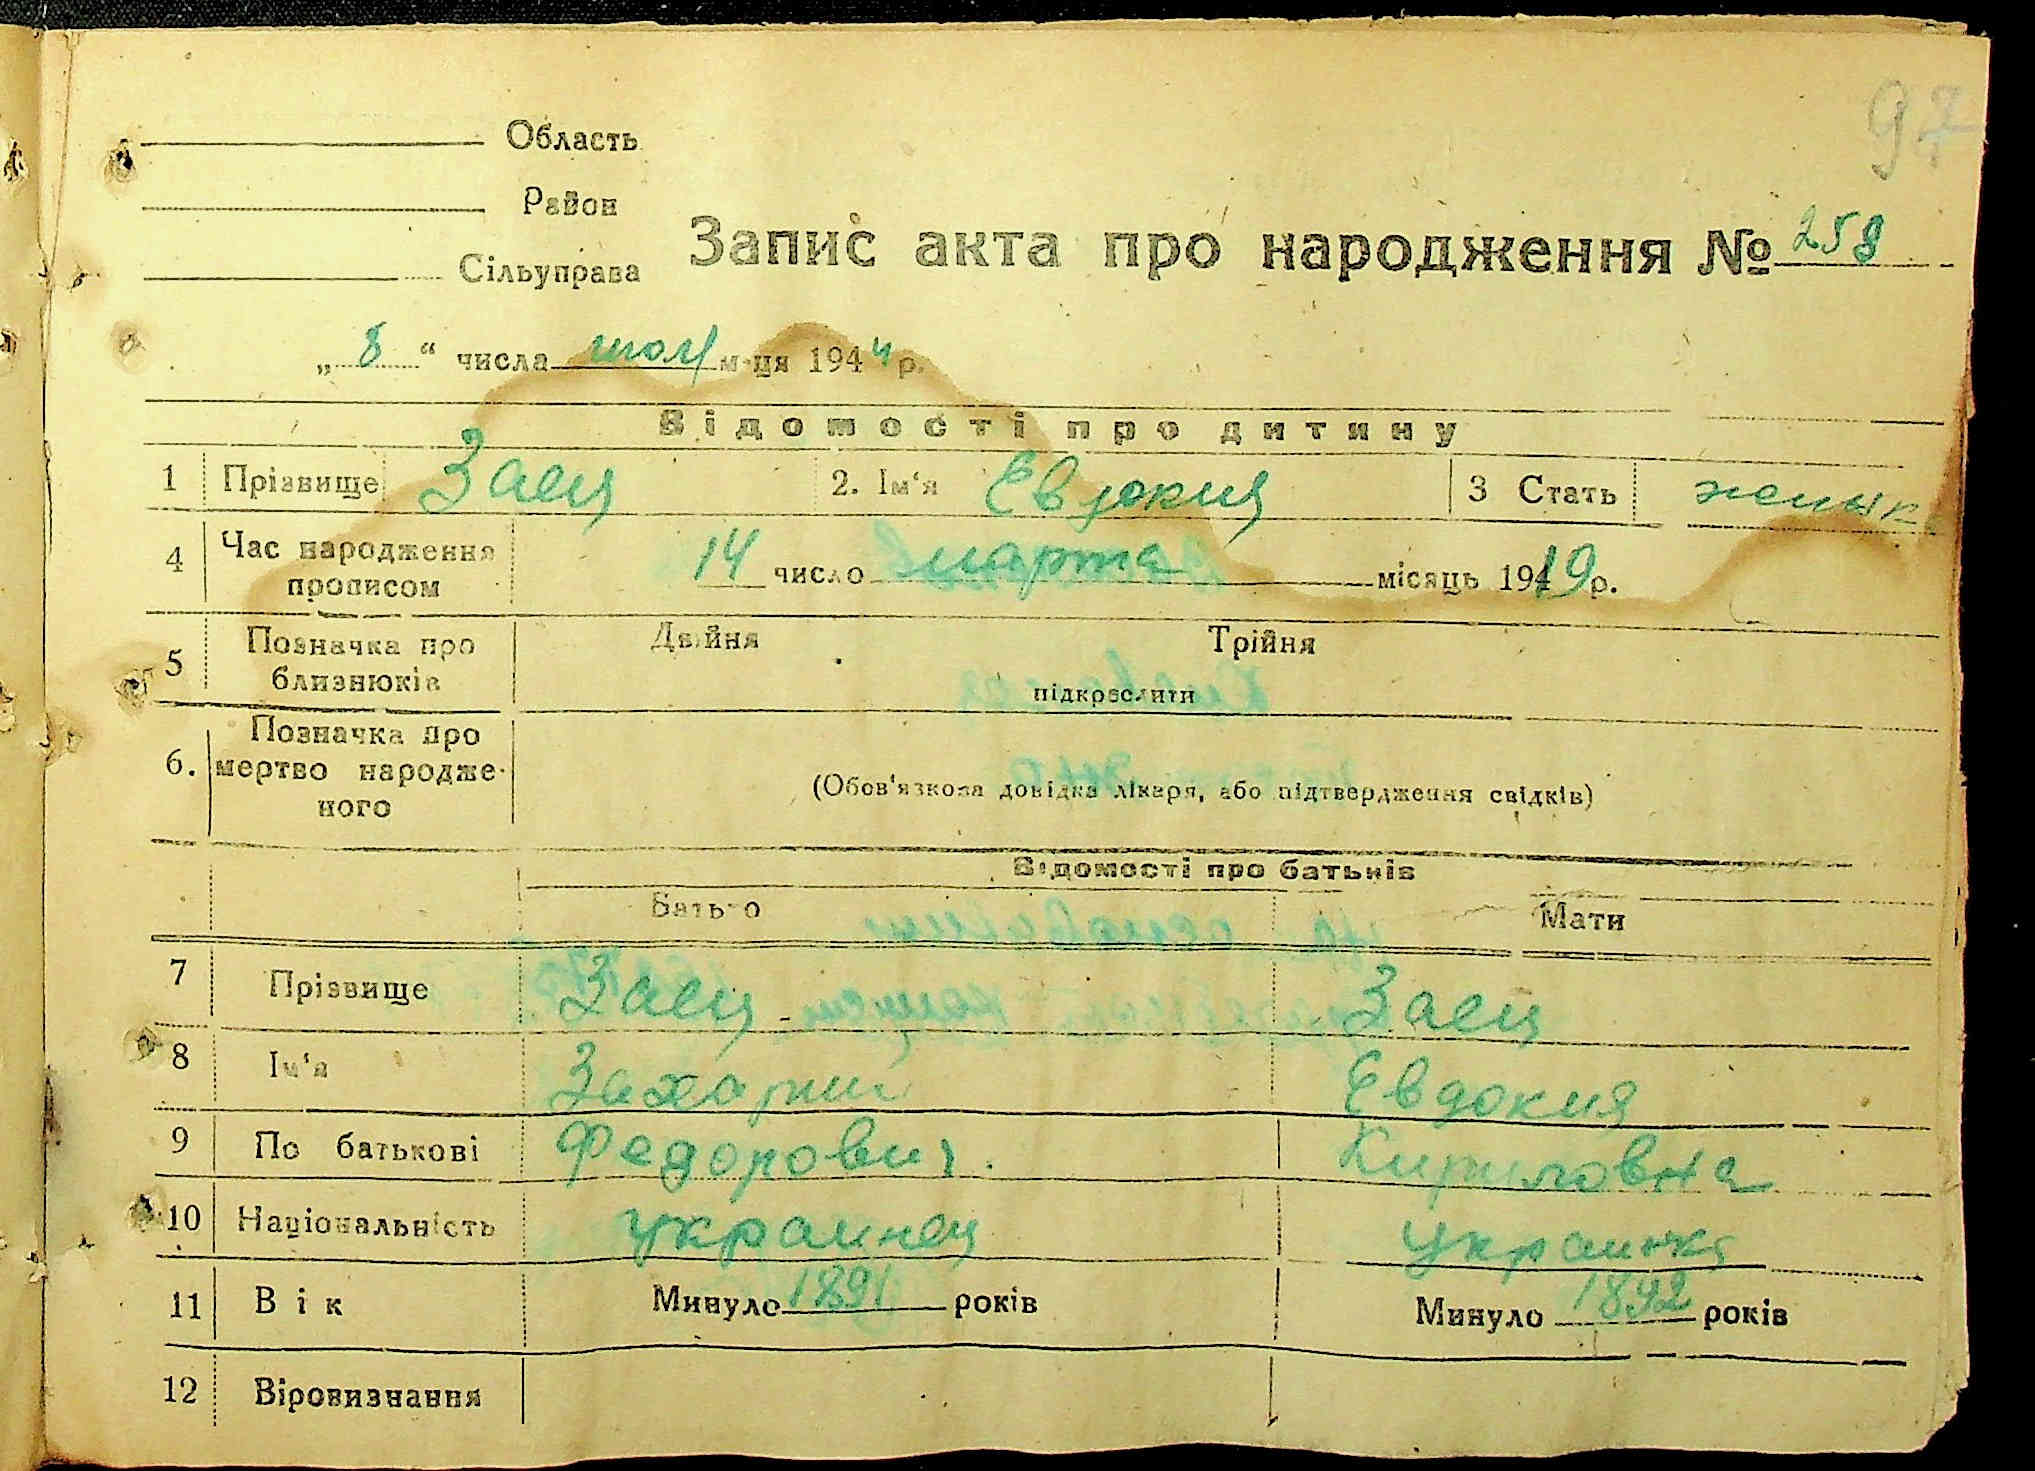 97
Область
Район
Сільуправа
Запис акта про народження № 258
„ 8 “ числа июля м-ця 1944 р.
Відомості про дитину
1 Прізвище Заец 2. Ім‘я Евдокия 3 Стать женск
4 Час народження прописом 14 число марта місяць 1919 р.
5 Позначка про близнюків Двійня Трійня
підкреслити
6. Позначка про мертво народже-ного (Обов'язкова довідка лікаря, або підтвердження свідків)
Відомості про батьків
Батько Мати
7 Прізвище Заец Заец
8 Ім‘я Захарий Евдокия
9 По батькові Федорович. Кириловна
10 Національність украинец украинка
11 Вік Минуло 1891 років Минуло 1892 років
12 Віровизнання